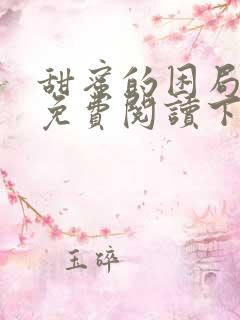 甜蜜的困局
免費閱讀下
玉碎